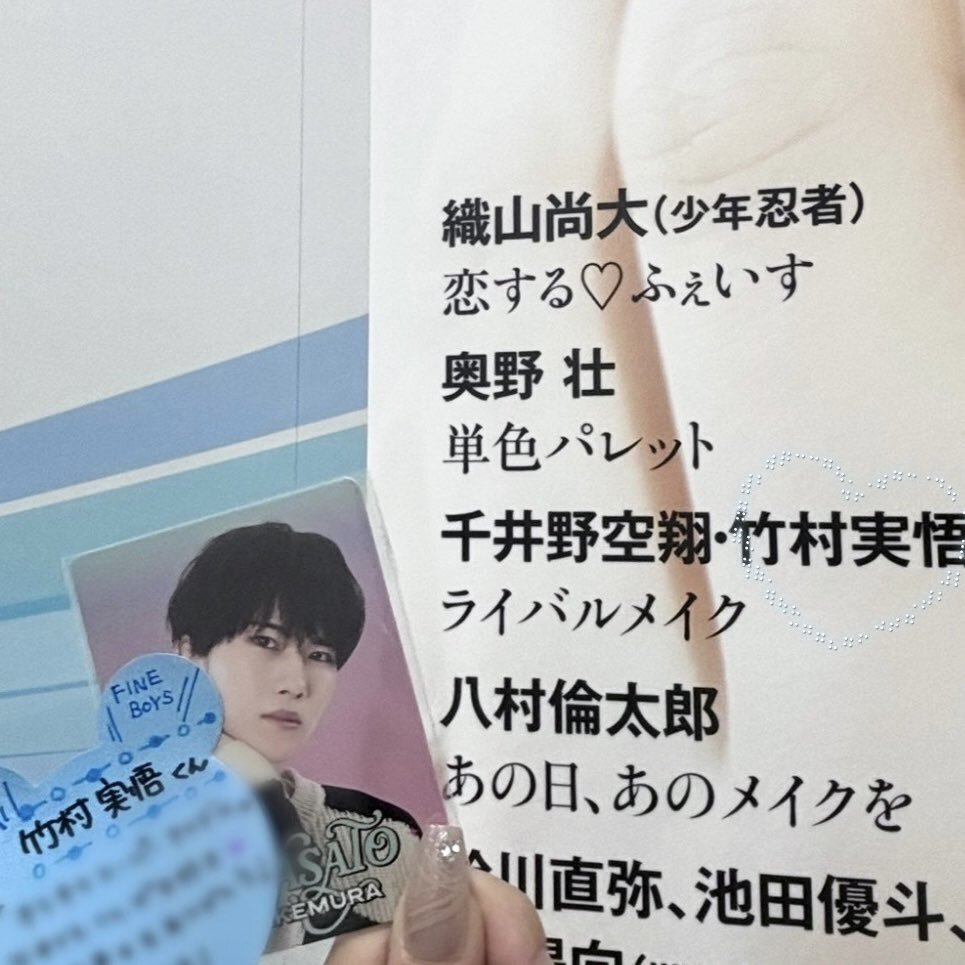 織山尚大(少年忍者)
恋する♡ふぇいす
奥野 壮
単色パレット
千井野空翔・竹村実悟
ライバルメイク
八村倫太郎
あの日、あのメイクを
川直弥、池田優斗、
FINE
BOYS
竹村実悟くん
SATO
KEMURA